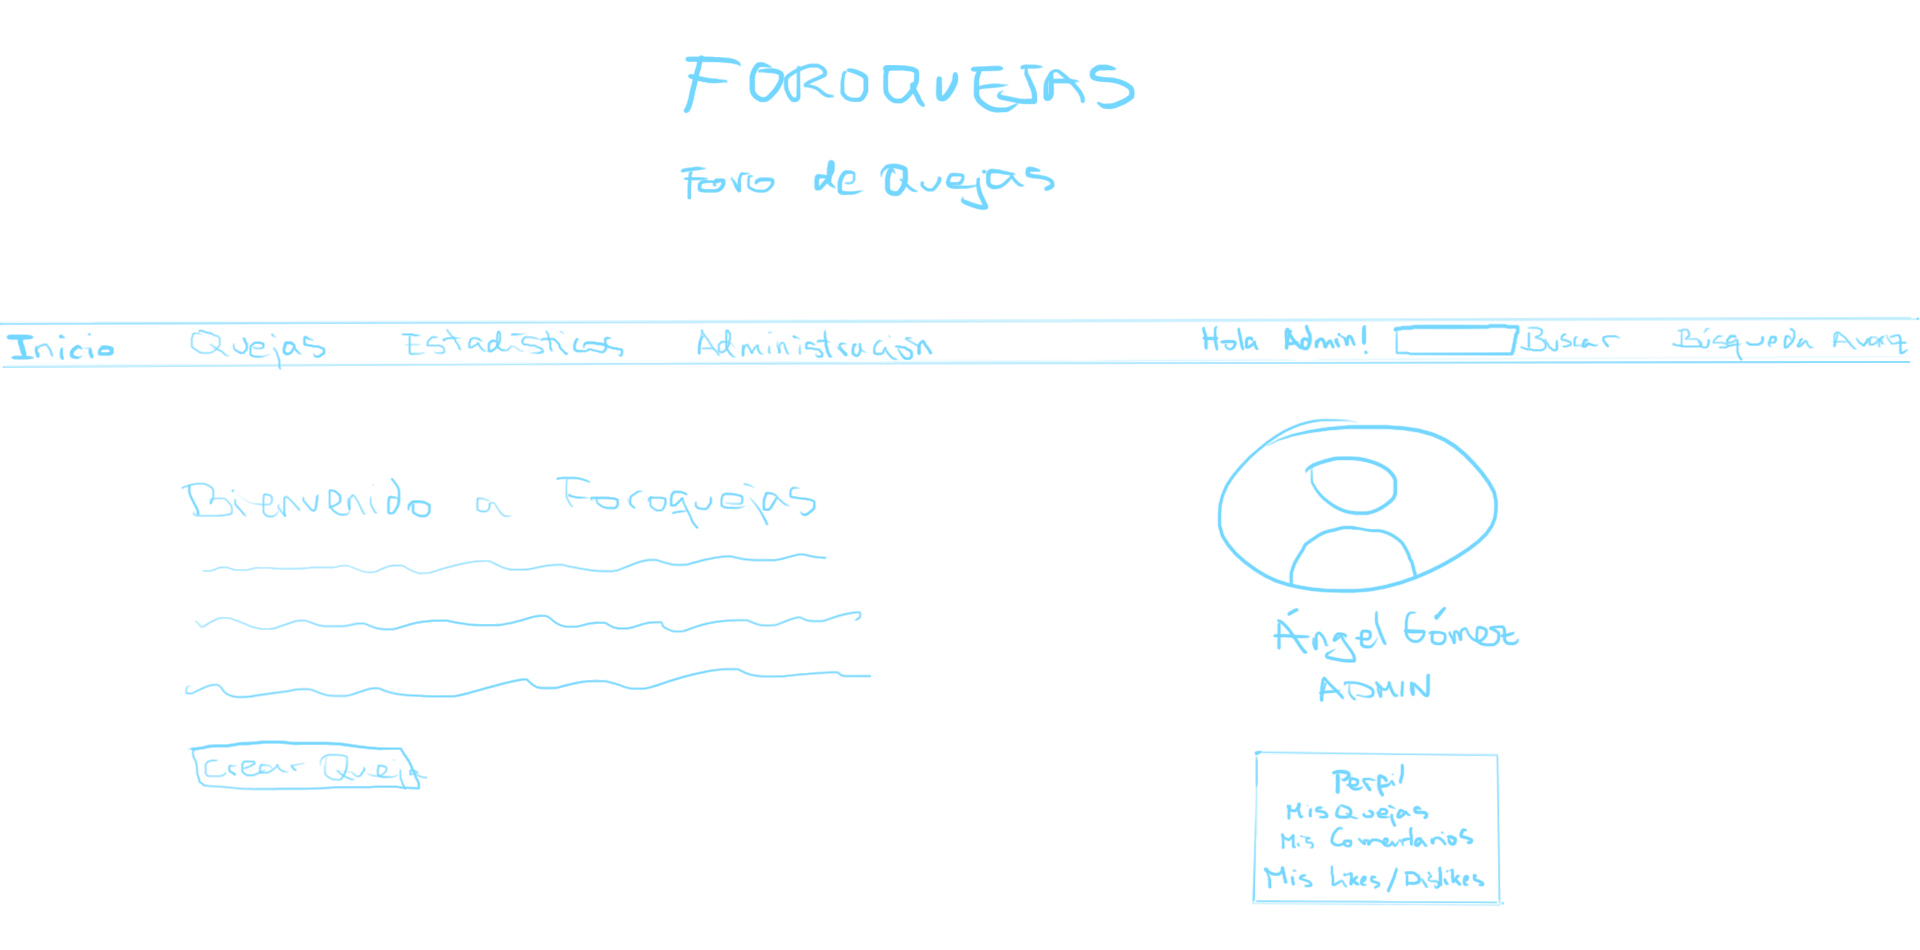 FOROQUEJAS
Foro de Quejas
Inicio Quejas Estadísticas Administración Hola Admin! Buscar Búsqueda Avanz
Bienvenido a Foroquejas
Crear Queja
Ángel Gómez
ADMIN
Perfil
Mis Quejas
Mis Comentarios
Mis Likes/Dislikes